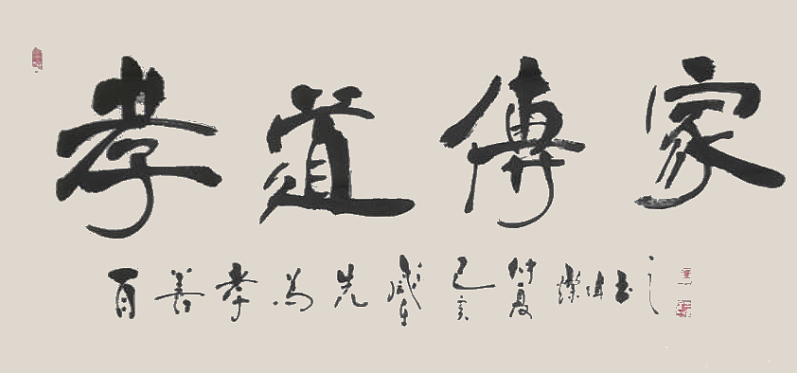 孝道傳家
百善孝为先歲在己亥仲夏書